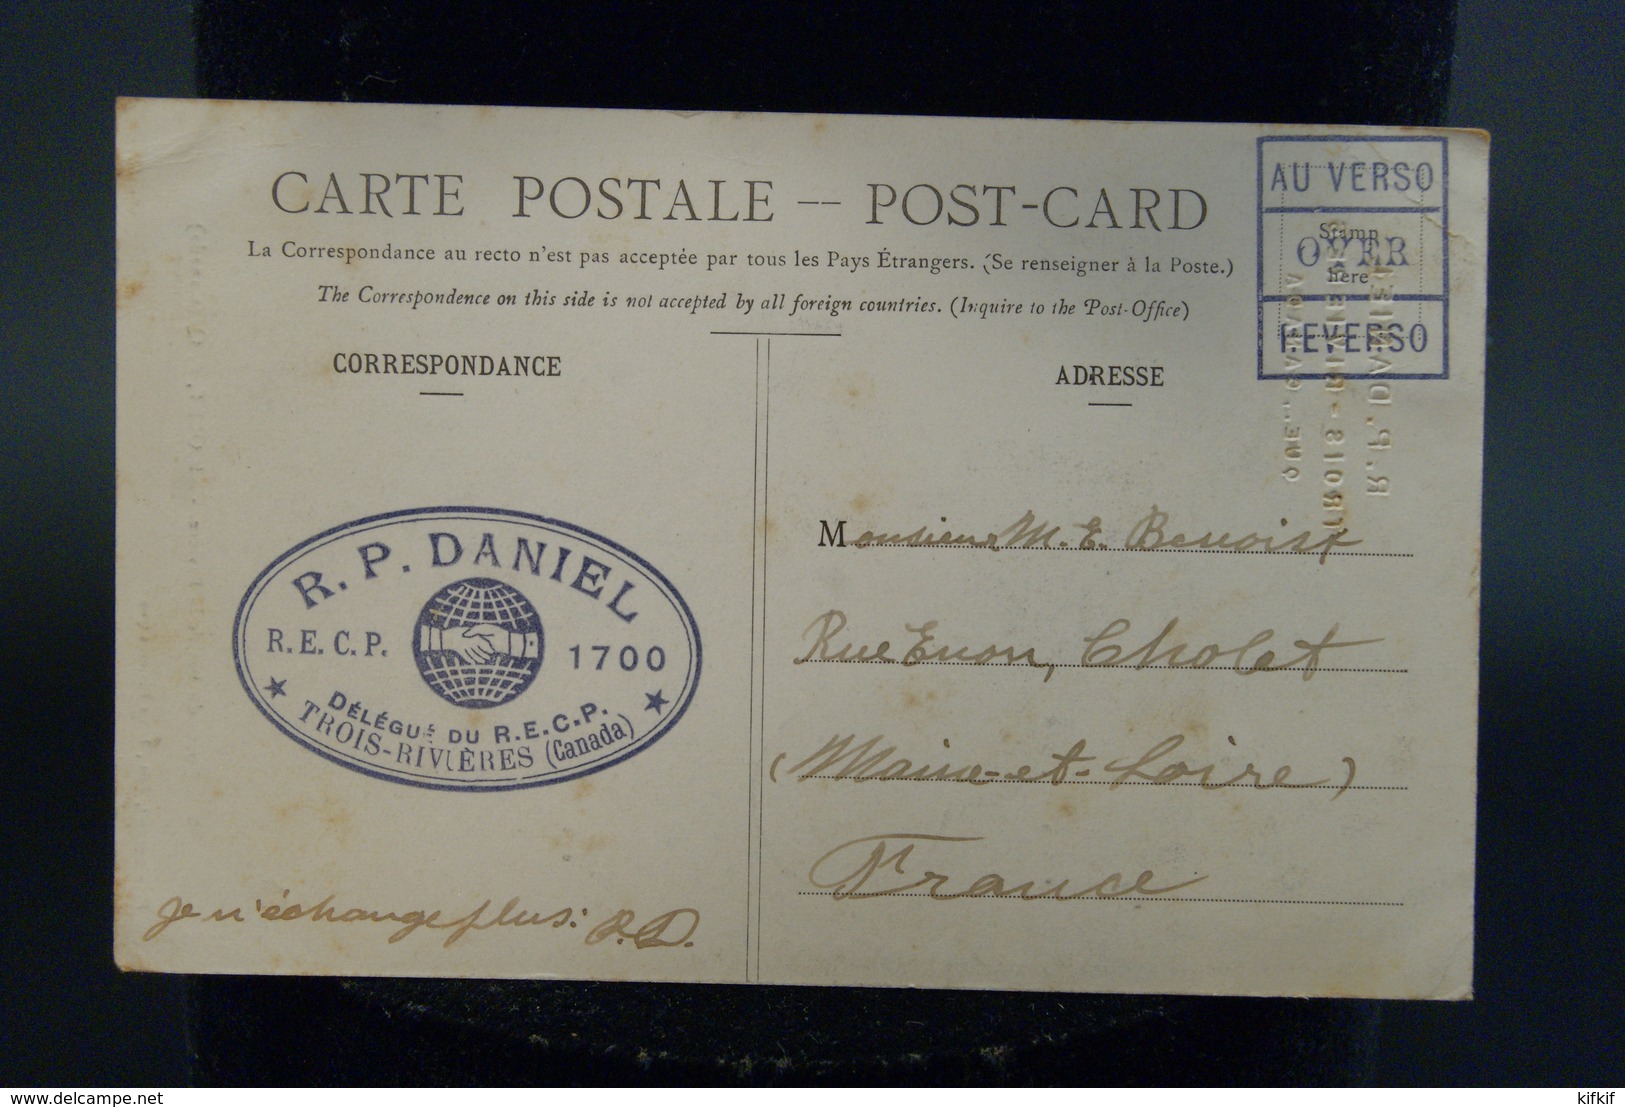 CARTE POSTALE -- POST-CARD
La Correspondance au recto n'est pas acceptée par tous les Pays Étrangers. (Se renseigner à la Poste.)
The Correspondence on this side is not accepted by all foreign countries. (Inquire to the Post-Office)
AU VERSO
Stamp
OVER
here
REVERSO
CORRESPONDANCE
ADRESSE
R. P. DANIEL
TROIS-RIVIERES
QUE., CANADA
R. P. DANIEL
R. E. C. P. 1700
DÉLÉGUÉ DU R.E.C.P.
TROIS-RIVIÈRES (Canada)
je n'échange plus: R.D.
Monsieur M. E. Benoist
Rue Euon, Cholet
(Maine-et-Loire)
France
www.delcampe.net
kifkif